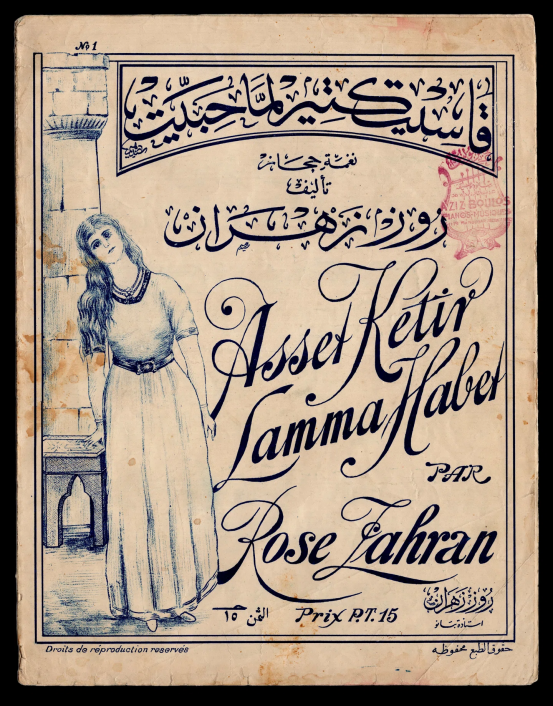 No 1
قاسيت كتير لمّا حبيّت
نغمة حجاز
تأليف
روز زهران
AZIZ BOULOS
PIANOS-MUSIQUES
Asset Ketir
Lamma Habet
PAR
Rose Zahran
روز زهران
استاذة بيانو
الثمن ١٥
Prix P.T. 15
Droits de réproduction reservés
حقوق الطبع محفوظه